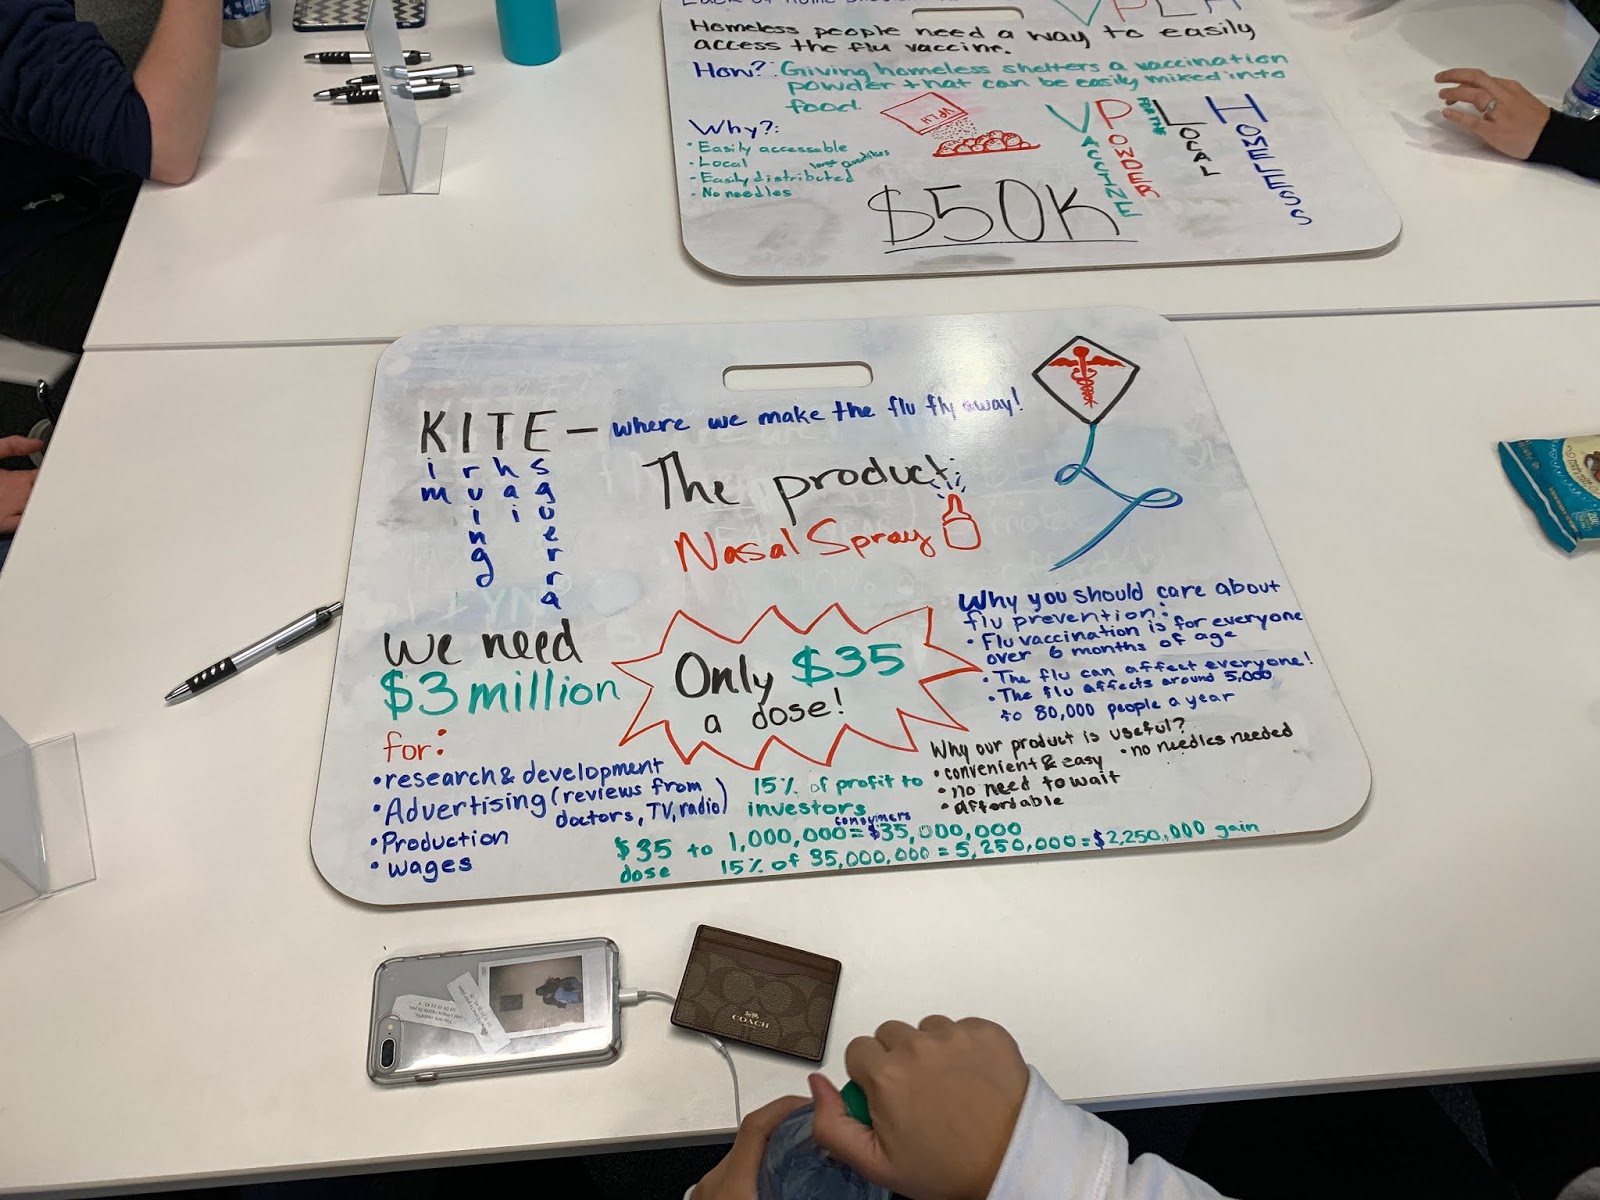 VPLH
Homeless people need a way to easily
access the flu vaccine.
How?: Giving homeless shelters a vaccination
powder that can be easily mixed into
food.
Why?:
• Easily accessable
• Local
• Easily distributed
• No needles
VPLH
VACCINE
POWDER
FOR THE
LOCAL
HOMELESS
$50K
KITE – where we make the flu fly away!
Kim
Iruing
Thai
Esguerra
The product:
Nasal Spray
We need
$3 million
for:
• research & development
• Advertising (reviews from
doctors, TV, radio)
• Production
• wages
Only $35
a dose!
15% of profit to
investors
$35 to 1,000,000 consumers = $35,000,000
dose
15% of 35,000,000 = 5,250,000 = $2,250,000 gain
Why you should care about
flu prevention:
• Flu vaccination is for everyone
over 6 months of age
• The flu can affect everyone!
• The flu affects around 5,000
to 80,000 people a year
Why our product is useful?
• convenient & easy
• no needles needed
• no need to wait
• affordable
COACH